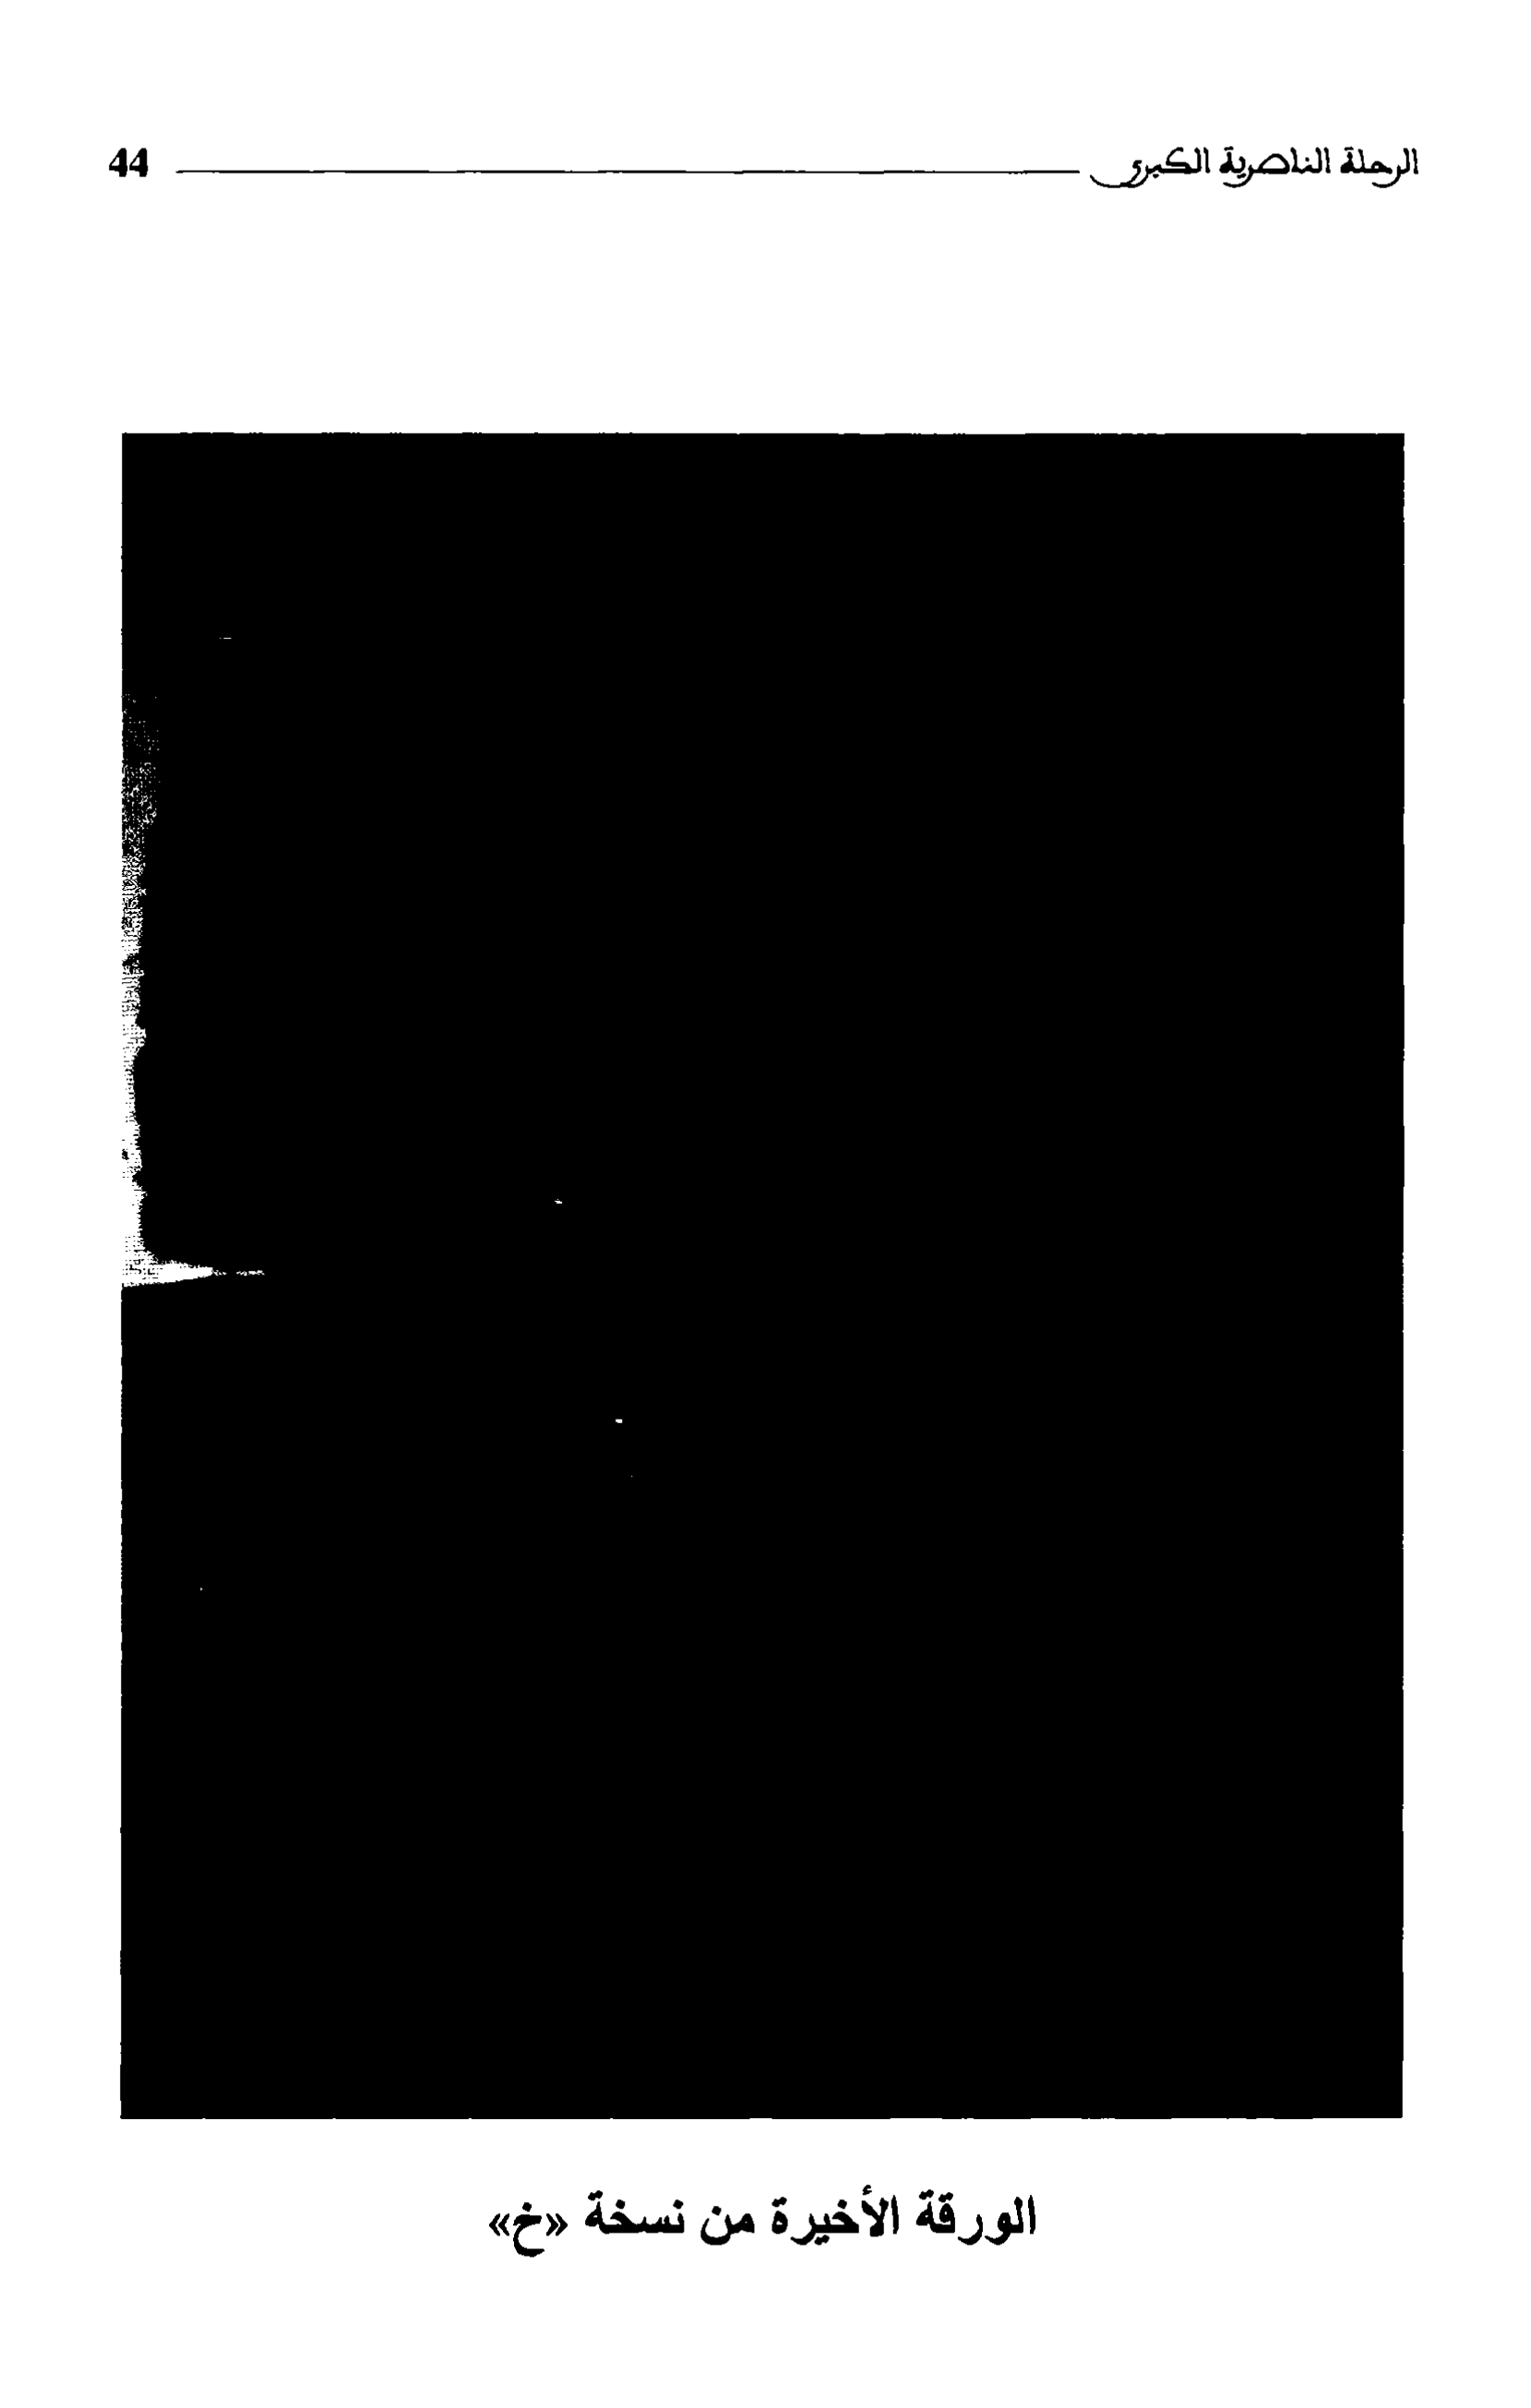 الرحلة الناصرية الكبرى 44
الورقة الأخيرة من نسخة «خ»